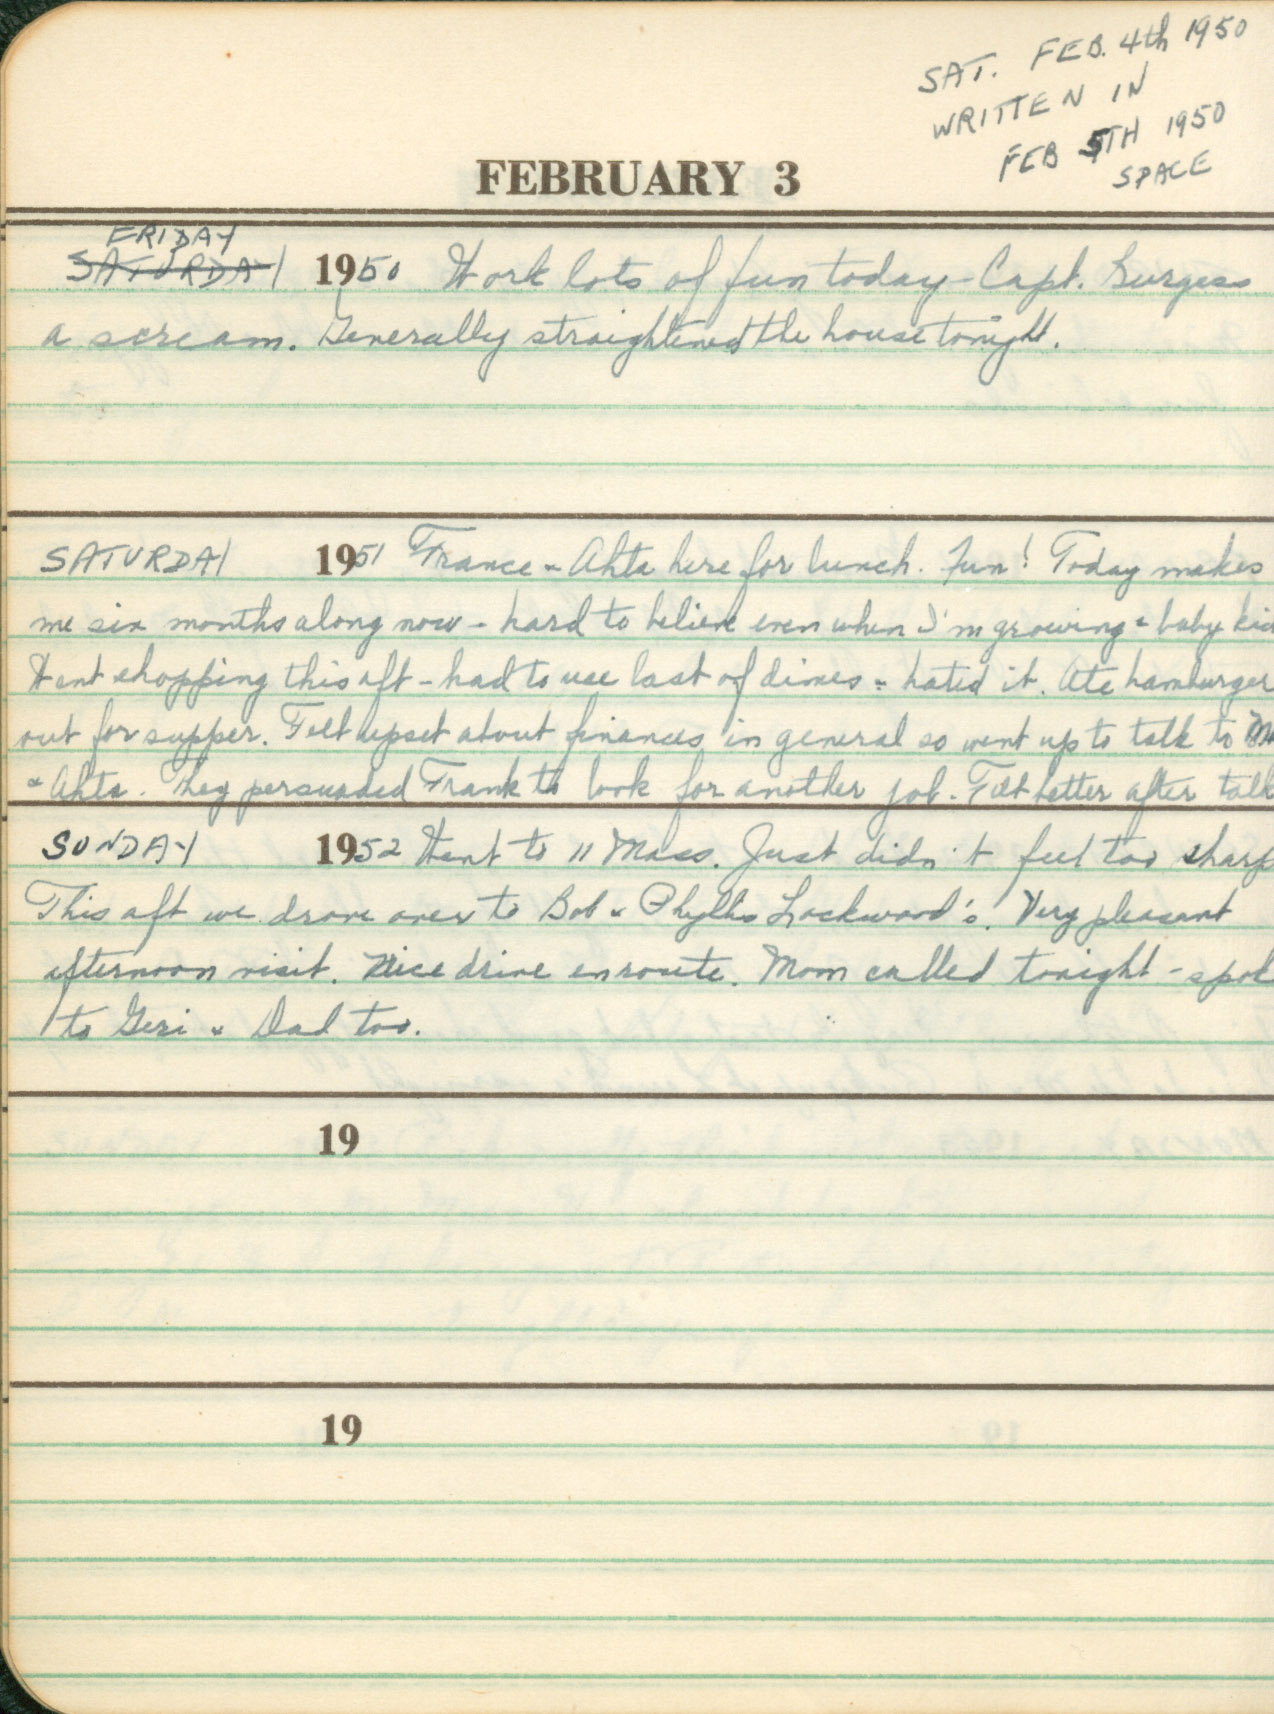 SAT. FEB. 4th 1950
WRITTEN IN
FEB 5TH 1950
SPACE
FEBRUARY 3
FRIDAY
SATURDAY 1950 Work lots of fun today - Capt. Burgess
a scream. Generally straightened the house tonight.
SATURDAY 1951 France & Ahta here for lunch. Fun! Today makes
me six months along now - hard to believe even when I'm growing & baby
Went shopping this aft - had to use last of dimes - hated it. Ate hamburger
out for supper. Felt upset about finances in general so went up to talk to
& Ahta. They persuaded Frank to look for another job. Felt better after talk
SUNDAY 1952 Went to 11 Mass. Just didn't feel too sharp
This aft we drove over to Bob & Phyllis Lockwood's. Very pleasant
afternoon visit. Nice drive enroute. Mom called tonight - spok
to Geri & Dad too.
19
19